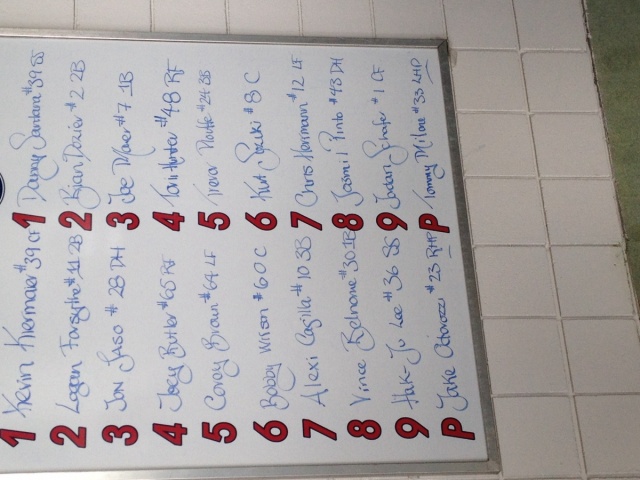 1 Kevin Kiermaier #39 CF
2 Logan Forsythe #11 2B
3 Jon Jaso #28 DH
4 Joey Butler #65 RF
5 Corey Brown #64 LF
6 Bobby Wilson #60 C
7 Alexi Casilla #10 3B
8 Vince Belnome #30 1B
9 Hak-Ju Lee #36 SS
P Jake Odorizzi #23 RHP
1 Danny Santana #39 SS
2 Brian Dozier #2 2B
3 Joe Mauer #7 1B
4 Torii Hunter #48 RF
5 Trevor Plouffe #24 3B
6 Kurt Suzuki #8 C
7 Chris Herrmann #12 LF
8 Josmil Pinto #43 DH
9 Jordan Schafer #1 CF
P Tommy Milone #33 LHP